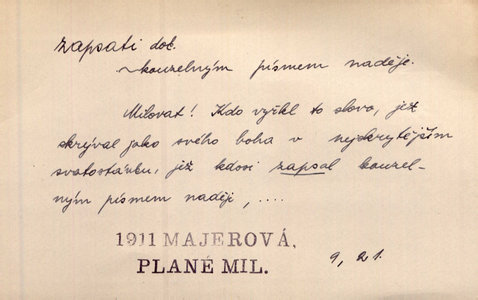 zapsati dok.
~kouzelným písmem naděje.
Milovat! Kdo vyřkl to slovo, jež
skrýval jako svého boha v nejskrytějším
svatostánku, jež kdosi zapsal kouzel-
ným písmem naději, ....
1911 MAJEROVÁ,
PLANÉ MIL.
9, 21.